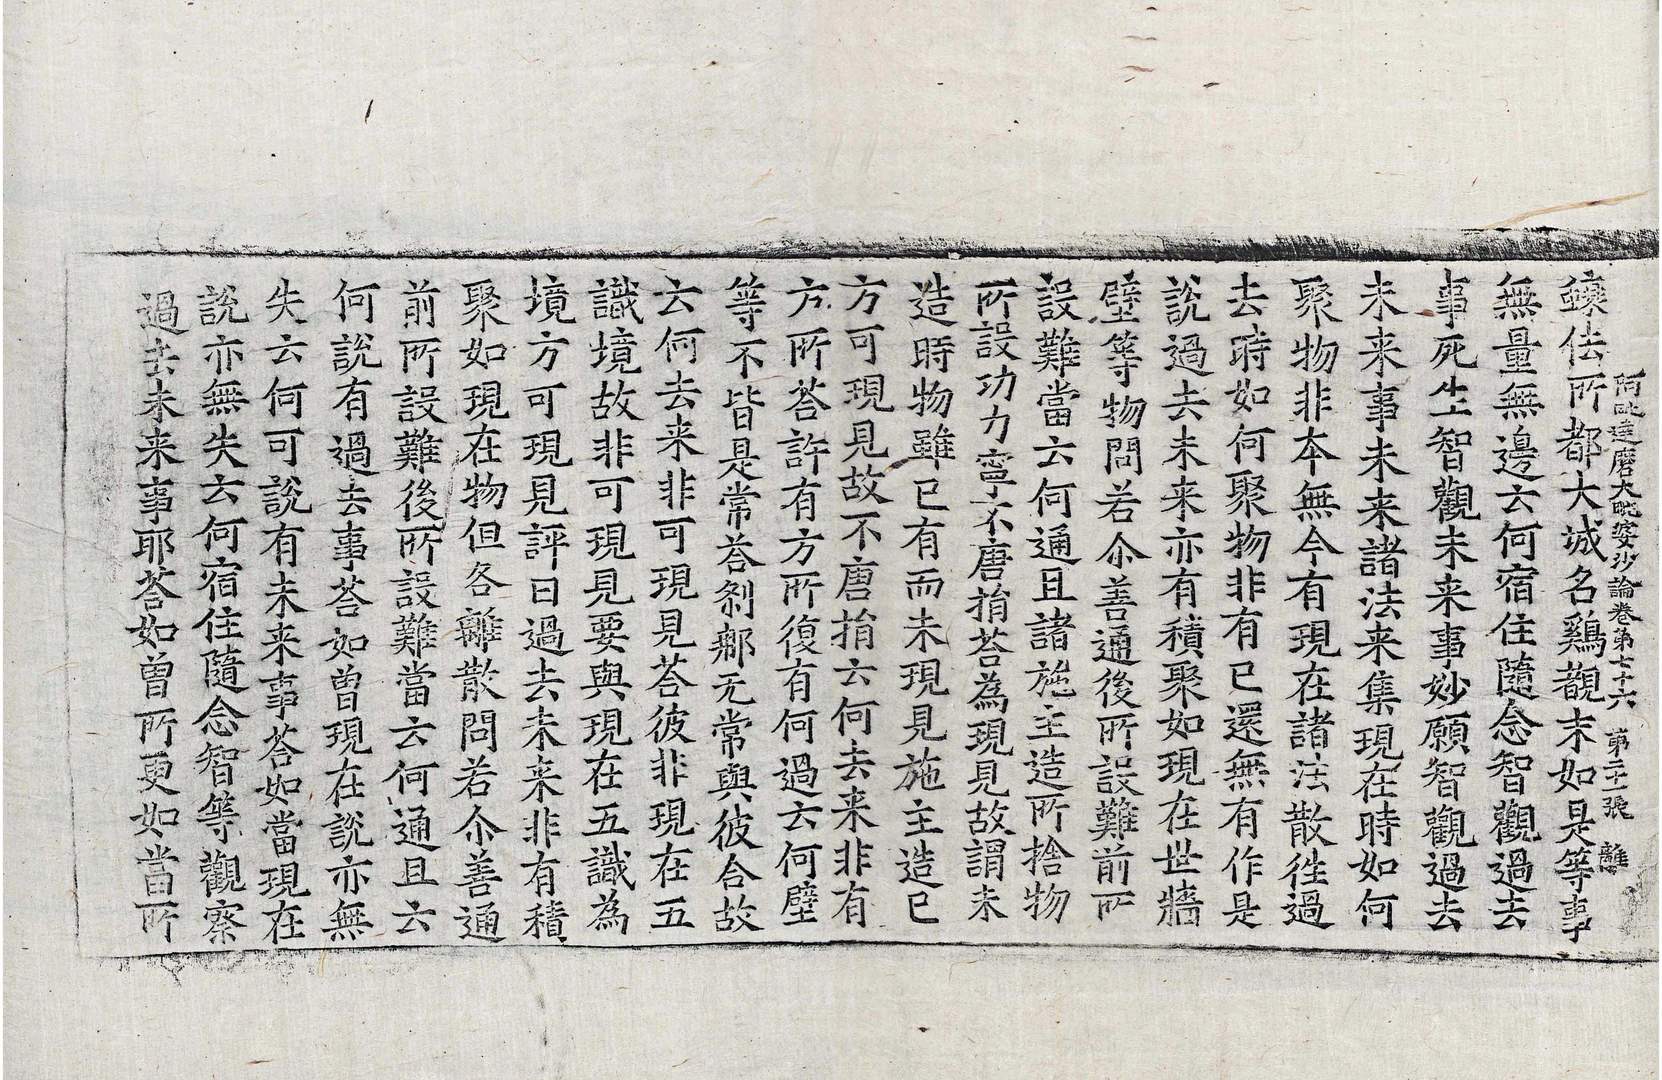 阿毗達磨大毗婆沙論卷第七十六 第二十張 離
蠰佉所都大城名鷄覩末如是等事
無量無邊云何宿住隨念智觀過去
事死生智觀未来事妙願智觀過去
未来事未来諸法来集現在時如何
聚物非本無今有現在諸法散徃過
去時如何聚物非有已還無有作是
說過去未来亦有積聚如現在世牆
壁等物問若尒善通後所設難前所
設難當云何通且諸施主造所捨物
所設功力寧不唐捐荅為現見故謂未
造時物雖已有而未現見施主造已
方可現見故不唐捐云何去来非有
方所荅許有方所復有何過云何壁
等不皆是常荅剎那无常與彼合故
云何去来非可現見荅彼非現在五
識境故非可現見要與現在五識為
境方可現見評曰過去未来非有積
聚如現在物但各離散問若尒善通
前所設難後所設難當云何通且云
何說有過去事荅如曾現在說亦無
失云何可說有未来事荅如當現在
說亦無失云何宿住隨念智等觀察
過去未来事耶荅如曾所更如當所